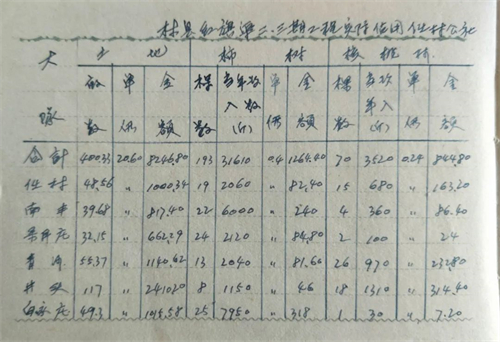 林县红旗渠二.三期工程实际占用任村公社
大队 土地 柿树 核桃树
亩数 单价 金额 棵数 当年收入数(斤) 单价 金额 棵数 当年收入(斤) 单价 金额
合计 400.33 20.60 8246.80 193 31610 0.4 1264.40 70 3520 0.24 844.80
任村 48.56 〃 1000.34 19 2060 〃 82.40 15 680 〃 163.20
南丰 39.68 〃 817.40 22 6000 〃 240 4 360 〃 86.40
32.15 〃 662.29 24 2120 〃 84.80 2 100 〃 24
55.37 〃 1140.62 13 2040 〃 81.60 26 970 〃 232.80
117 〃 2410.20 8 1150 〃 46 18 1310 〃 314.40
白家庄 49.3 〃 1015.58 25 7950 〃 318 1 30 〃 7.20